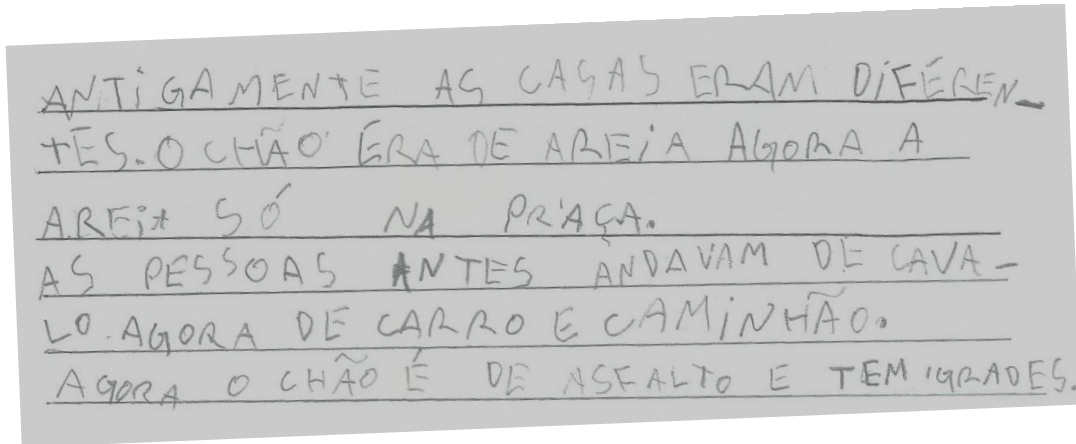 ANTIGAMENTE AS CASAS ERAM DIFEREN-
TES. O CHÃO ERA DE AREIA AGORA A
AREIA SÓ NA PRAÇA.
AS PESSOAS ANTES ANDAVAM DE CAVA-
LO. AGORA DE CARRO E CAMINHÃO.
AGORA O CHÃO É DE ASFALTO E TEM GRADES.